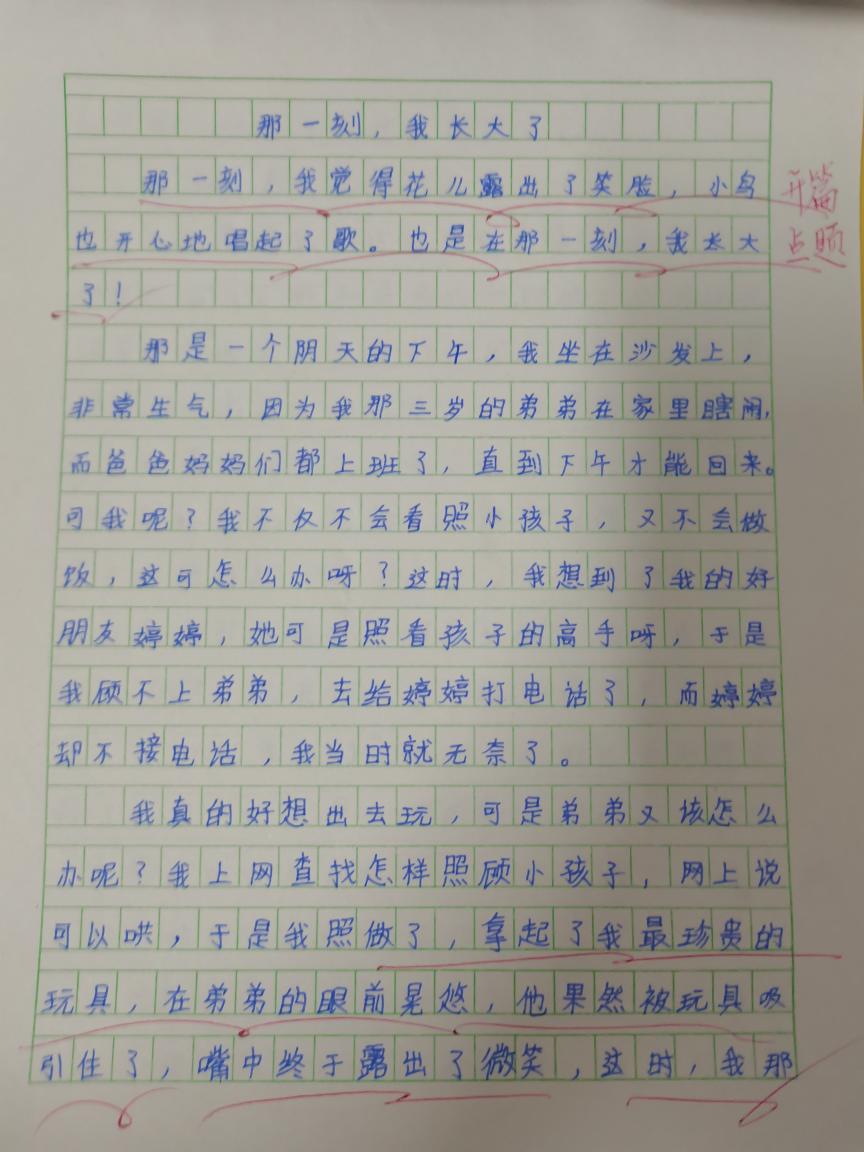 那一刻，我长大了
那一刻，我觉得花儿露出了笑脸，小鸟
也开心地唱起了歌。也是在那一刻，我长大
了！
开篇
点题
那是一个阴天的下午，我坐在沙发上，
非常生气，因为我那三岁的弟弟在家里瞎闹，
而爸爸妈妈们都上班了，直到下午才能回来。
可我呢？我不仅不会看照小孩子，又不会做
饭，这可怎么办呀？这时，我想到了我的好
朋友婷婷，她可是照看孩子的高手呀，于是
我顾不上弟弟，去给婷婷打电话了，而婷婷
却不接电话，我当时就无奈了。
我真的好想出去玩，可是弟弟又该怎么
办呢？我上网查找怎样照顾小孩子，网上说
可以哄，于是我照做了，拿起了我最珍贵的
玩具，在弟弟的眼前晃悠，他果然被玩具吸
引住了，嘴中终于露出了微笑，这时，我那